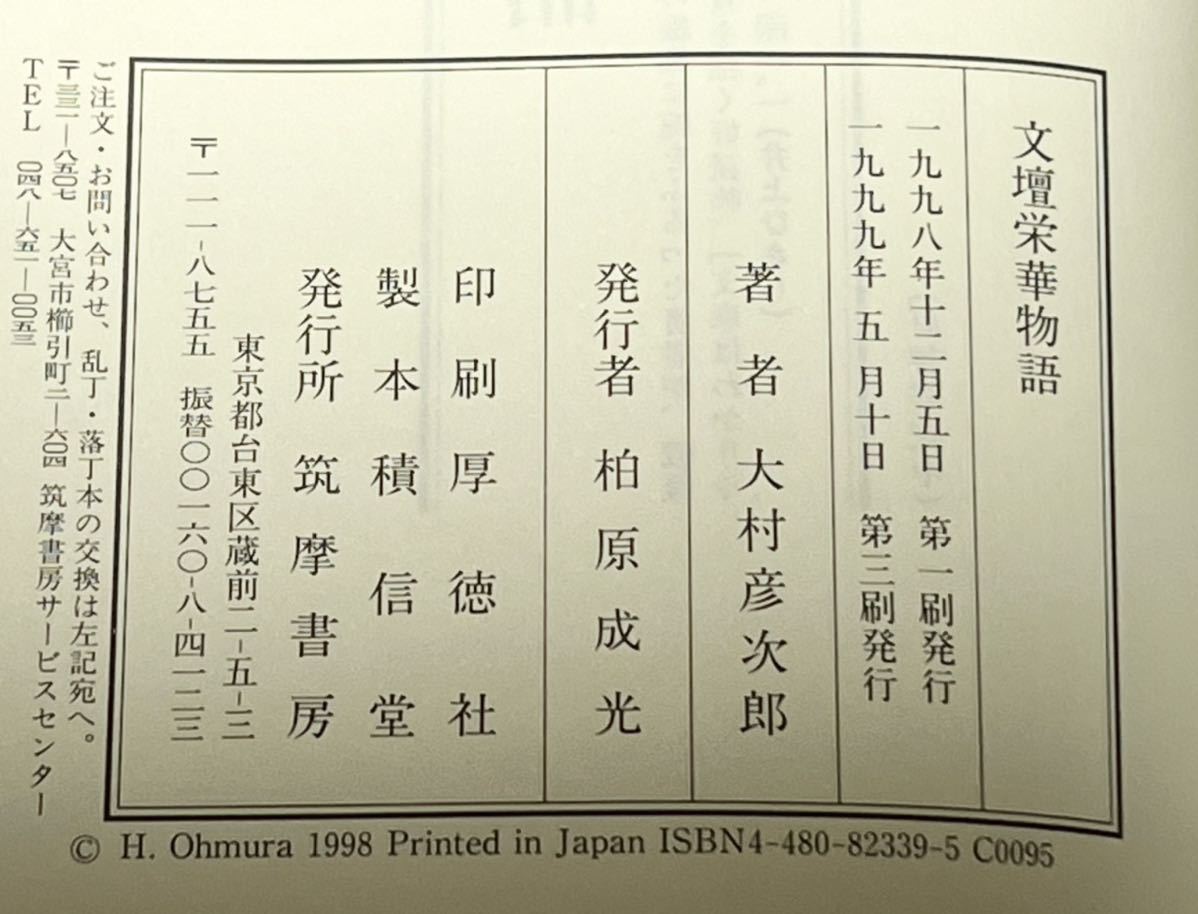 文壇栄華物語
一九九八年十二月五日　第一刷発行
一九九九年　五　月十日　第三刷発行
著者　大村彦次郎
発行者　柏原成光
印刷　厚徳社
製本　積信堂
発行所　筑摩書房
東京都台東区蔵前二-五-三
〒一一一-八七五五　振替〇〇一六〇-八-四一二三
ご注文・お問い合わせ、乱丁・落丁本の交換は左記宛へ。
〒三三一-八五〇七　大宮市櫛引町二-六〇四　筑摩書房サービスセンター
TEL　〇四八-六五一-〇〇五三
© H. Ohmura 1998 Printed in Japan ISBN4-480-82339-5 C0095